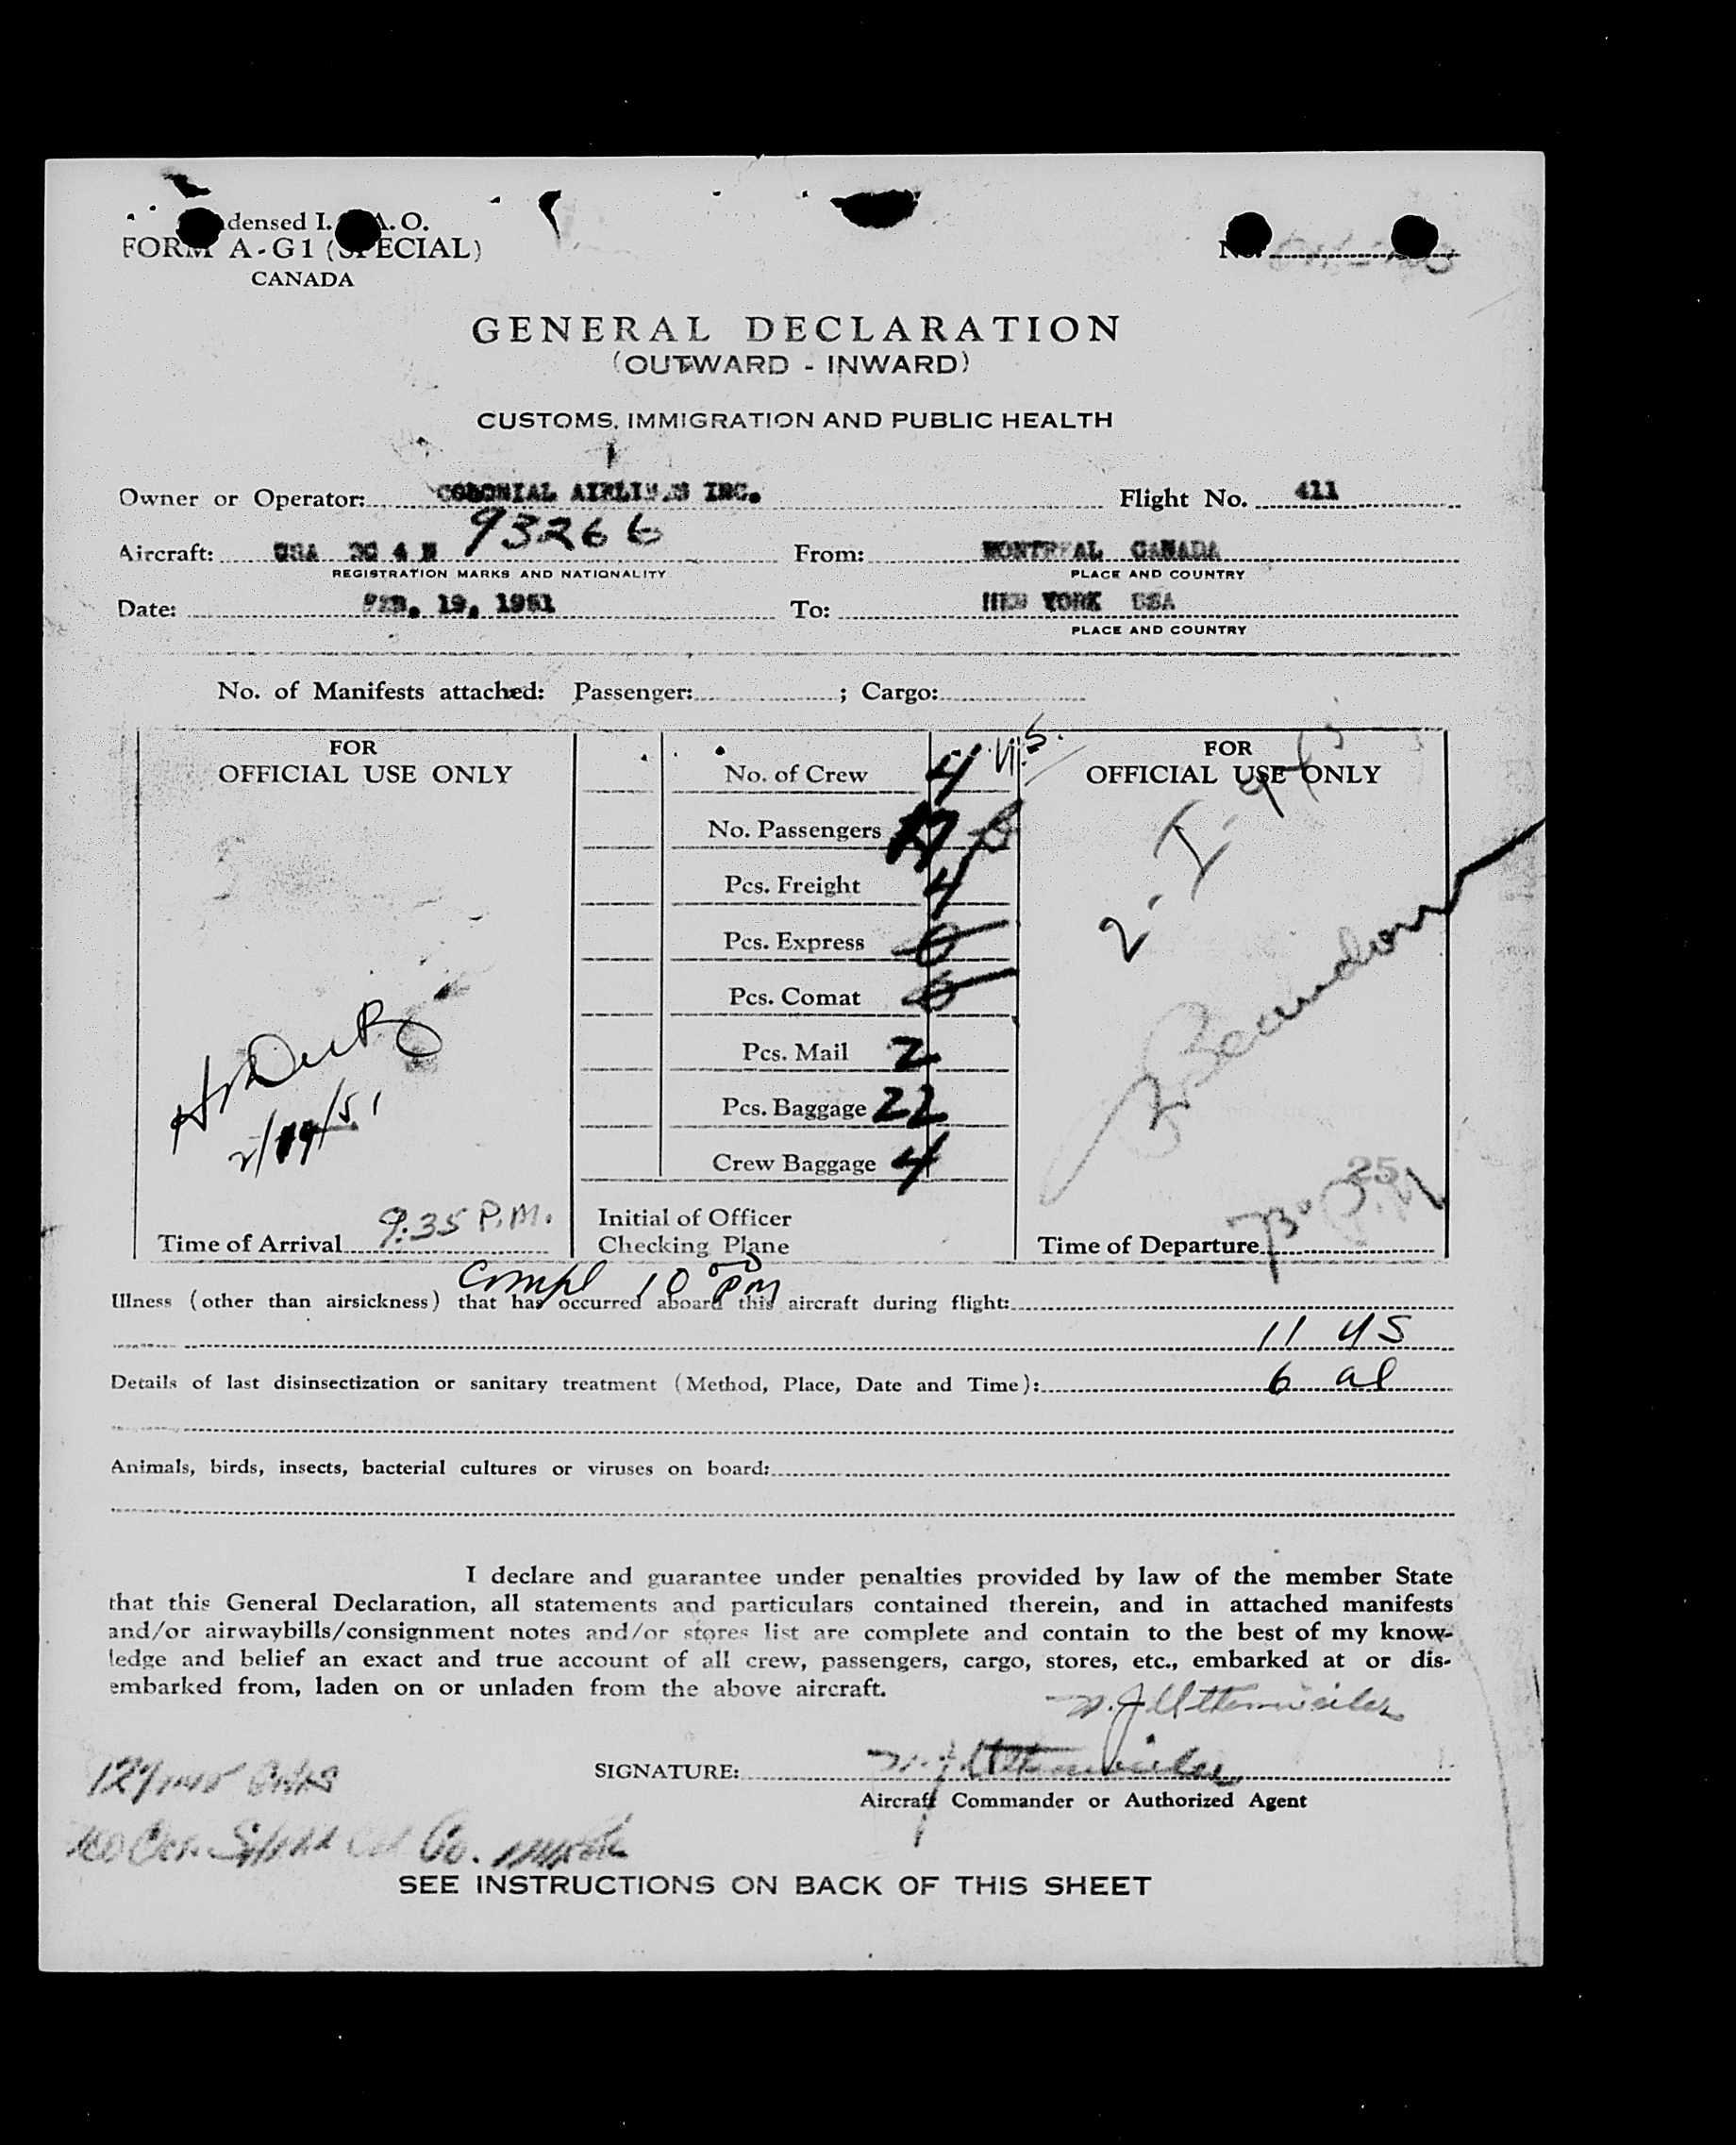 densed I. A. O.
FORM A-G1 (SPECIAL)
CANADA
No.
GENERAL DECLARATION
(OUTWARD - INWARD)
CUSTOMS, IMMIGRATION AND PUBLIC HEALTH
Owner or Operator: COLONIAL AIRLINES INC. Flight No. 411
Aircraft: USA DC 4 N 93266 From: MONTREAL CANADA
REGISTRATION MARKS AND NATIONALITY PLACE AND COUNTRY
Date: FEB. 19, 1951 To: NEW YORK USA
PLACE AND COUNTRY
No. of Manifests attached: Passenger: ; Cargo:
FOR
OFFICIAL USE ONLY
2/19/51
Time of Arrival 9:35 P.M.
No. of Crew 4 U.S.
No. Passengers
Pcs. Freight 4
Pcs. Express 0
Pcs. Comat 0
Pcs. Mail 2
Pcs. Baggage 22
Crew Baggage 4
Initial of Officer
Checking Plane
FOR
OFFICIAL USE ONLY
25
Time of Departure
Compl 10 00 PM
Illness (other than airsickness) that has occurred aboard this aircraft during flight:
11 US
Details of last disinsectization or sanitary treatment (Method, Place, Date and Time): 6 al
Animals, birds, insects, bacterial cultures or viruses on board:
I declare and guarantee under penalties provided by law of the member State
that this General Declaration, all statements and particulars contained therein, and in attached manifests
and/or airwaybills/consignment notes and/or stores list are complete and contain to the best of my know-
ledge and belief an exact and true account of all crew, passengers, cargo, stores, etc., embarked at or dis-
embarked from, laden on or unladen from the above aircraft.
SIGNATURE:
Aircraft Commander or Authorized Agent
SEE INSTRUCTIONS ON BACK OF THIS SHEET